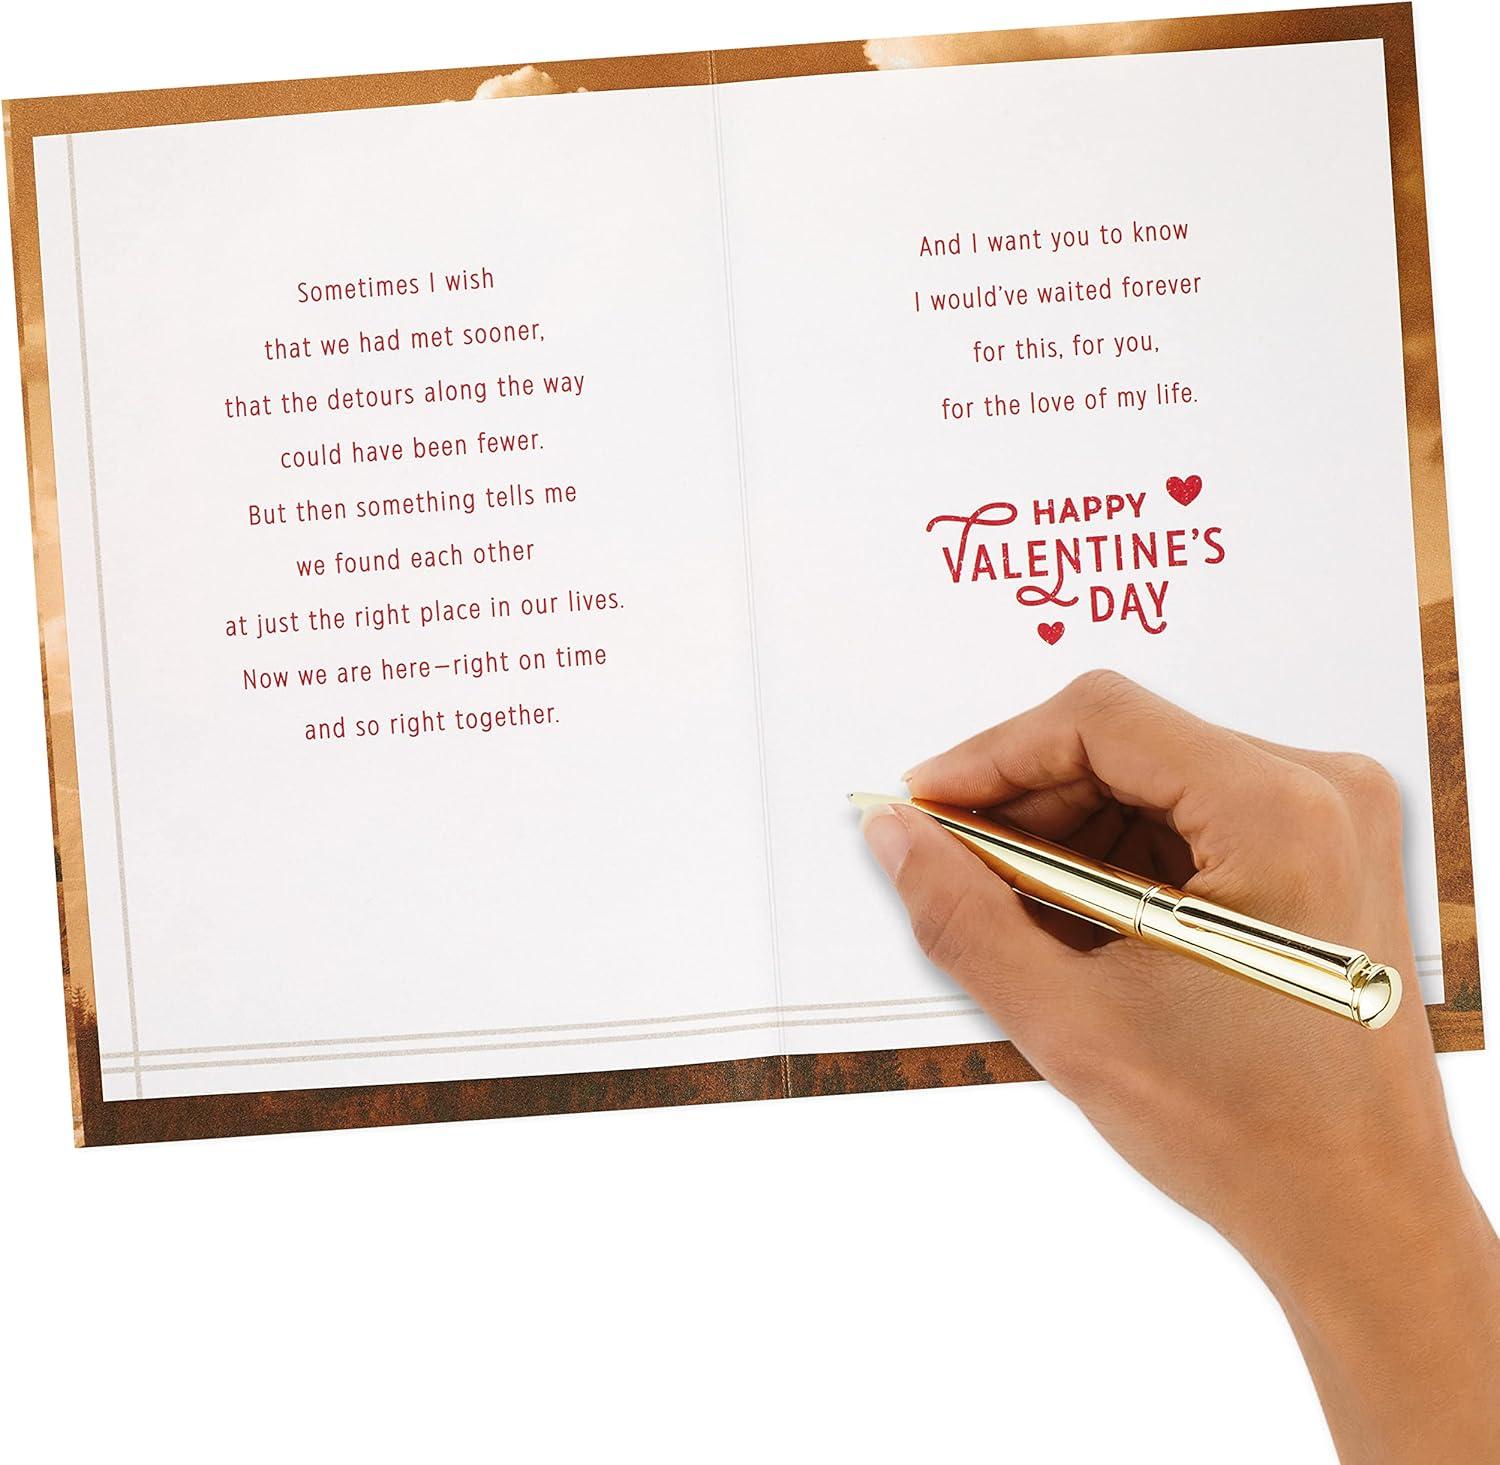 Sometimes I wish
that we had met sooner,
that the detours along the way
could have been fewer.
But then something tells me
we found each other
at just the right place in our lives.
Now we are here—right on time
and so right together.
And I want you to know
I would've waited forever
for this, for you,
for the love of my life.
HAPPY
VALENTINE'S
DAY